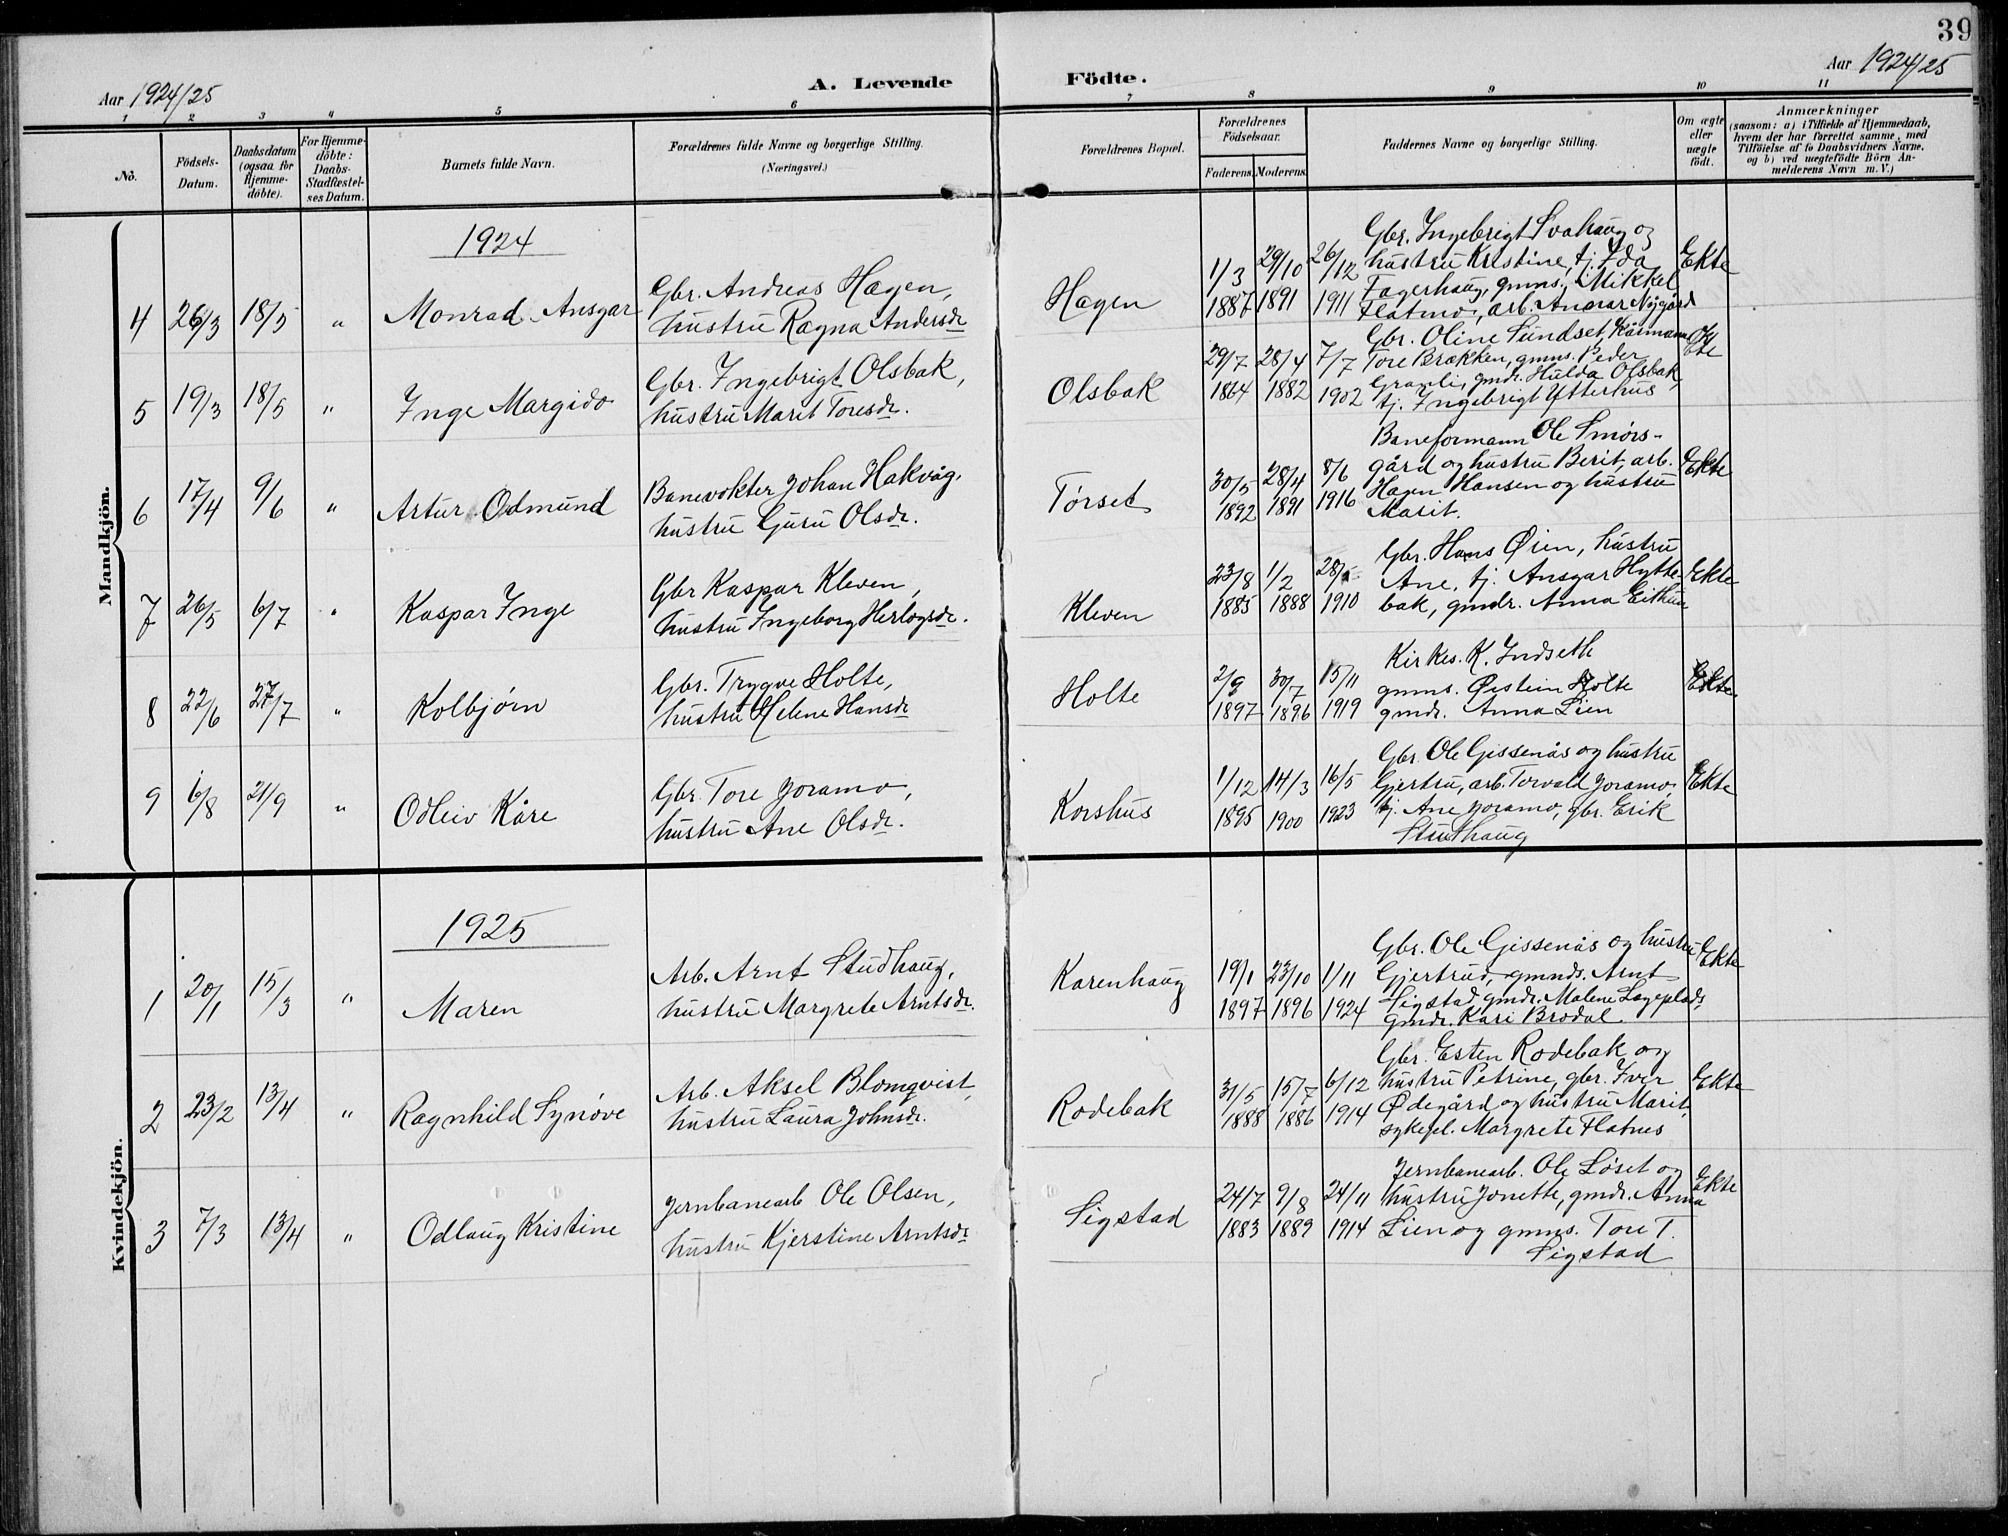 39
Aar 1924/25
A. Levende Födte.
Aar 1924/25
1 2 3 4 5 6 7 8 9 10 11
No.
Födsels-
Datum.
Daabsdatum
(ogsaa for
Hjemme-
döbte).
For Hjemme-
döbte:
Daabs-
Stadfæstel-
ses Datum.
Barnets fulde Navn.
Forældrenes fulde Navne og borgerlige Stilling.
(Næringsvei.)
Forældrenes Bopæl.
Forældrenes
Födselsaar.
Faderens. Moderens.
Faddernes Navne og borgerlige Stilling.
Om ægte
eller
uægte
födt.
Anmærkninger
(saasom: a) i Tilfælde af Hjemmedaab,
hvem der har forrettet samme, med
Tilföielse af to Daabsvidners Navne,
og b) ved uægtefödte Börn An-
melderens Navn m. V.)
Mandkjön.
1924
4 26/3 18/5 " Monrad Ansgar
Gbr. Andreas Hagen,
hustru Ragna Andersdr.
Hagen
1/3 1887
29/10 1891
26/12 1911
Gbr. Ingebrigt Svahaug og
hustru Kristine, tj. Ida
Fagerhaug, gmns. Mikkel
Flatmo, arb. Nygård
Ekte
5 19/3 18/5 " Inge Margido
Gbr. Ingebrigt Olsbak,
hustru Marit Toresdr.
Olsbak
29/7 1864
28/4 1882
7/7 1902
Gbr. Oline Sundset,
Tore Brækken, gmns. Peder
Granli, gmdr. Hulda Olsbak,
tj. Ingebrigt Ytterhus
Ekte
6 17/4 9/6 " Artur Odmund
Banevokter Johan Hakvåg,
hustru Guru Olsdr.
Tørset
30/5 1892
28/4 1891
8/6 1916
Baneformann Ole Smørs-
gård og hustru Berit, arb.
Hagen Hansen og hustru
Marit.
Ekte
7 26/5 6/7 " Kaspar Inge
Gbr Kaspar Kleven,
hustru Ingeborg Herlogsdr.
Kleven
23/8 1885
1/2 1888
28/5 1910
Gbr. Hans Øien, hustru
Ane, tj. Ansgar Hytte-
bak, gmdr. Anna Eithun
Ekte
8 22/6 27/7 " Kolbjørn
Gbr. Trygve Holte,
hustru Helene Hansdr
Holte
2/9 1897
30/7 1896
15/11 1919
Kirkes. K. Indseth
gmns. Øistein Holte
gmdr. Anna Lien
Ekte.
9 6/8 21/9 " Odleiv Kåre
Gbr. Tore Joramo,
hustru Ane Olsdr.
Korshus
1/12 1895
14/3 1900
16/5 1923
Gbr. Ole Gissenås og hustru
Gjertru, arb. Torvald Joramo,
tj. Ane Joramo, gbr. Erik
Studhaug
Ekte
Kvindekjön.
1925
1 20/11 15/3 " Maren
Arb. Arnt Studhaug,
hustru Margrete Arntsdr.
Karenhaug
19/1 1897
23/10 1896
1/11 1924
Gbr. Ole Gissenås og hustru
Gjertrud, gmnds. Arnt
Sigstad, gmdr. Malene Lageplads
Gmdr. Kari Brodal
Ekte
2 23/2 13/4 " Ragnhild Synøve
Arb. Aksel Blomqvist,
hustru Laura Johnsdr.
Rodebak
31/5 1888
15/7 1886
6/12 1914
Gbr. Esten Rodebak og
hustru Petrine, gbr. Iver
Ødegård og hustru Marit,
sykepl. Margrete Flatnes
Ekte
3 7/3 13/4 " Odlaug Kristine
Jernbanearb Ole Olsen,
hustru Kjerstine Arntsdr
Sigstad
24/7 1883
9/8 1889
24/11 1914
Jernbanearb. Ole Løset og
hustru Jonette, gmdr. Anna
Lien og gmns. Tore T.
Sigstad
Ekte